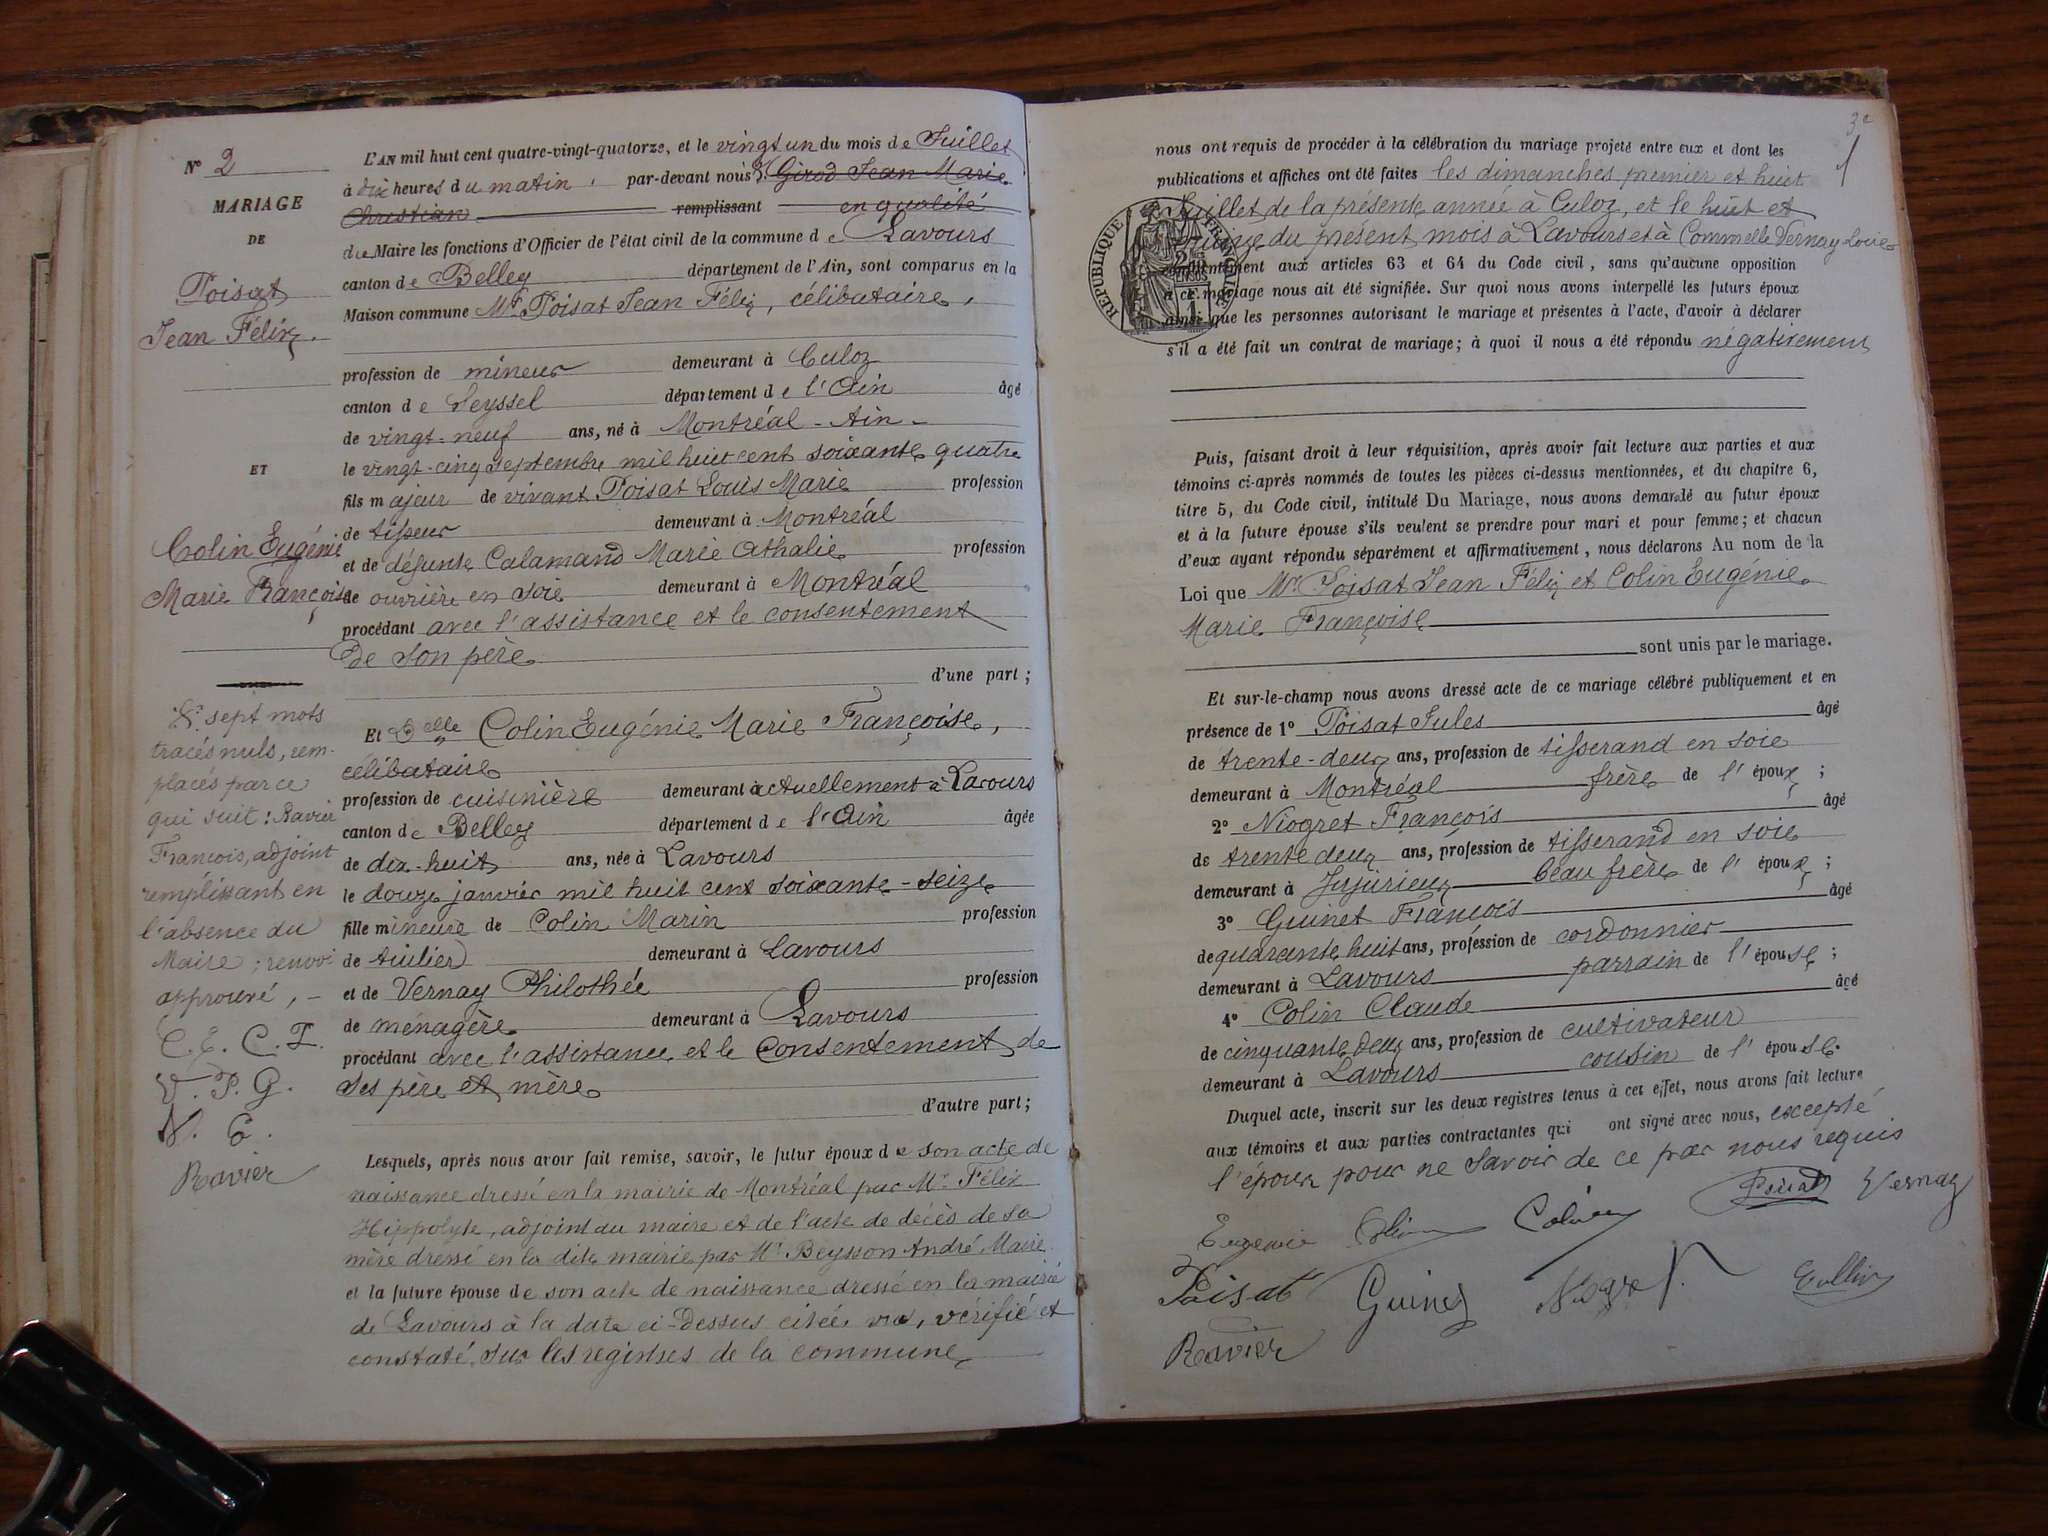 N° 2
MARIAGE
DE
Poisat
Jean Félix.
ET
Colin Eugénie
Marie Françoise
sept mots
tracés nuls, rem-
placés par ce
qui suit : Ravier
François, adjoint
remplissant en
l'absence du
Maire ; renvoi
approuvé, -
C. E. C. F.
V. P. G.
N. C.
Ravier
L'AN mil huit cent quatre-vingt-quatorze, et le vingt un du mois de Juillet
à dix heures du matin, par-devant nous Girod Jean Marie
Christian remplissant en qualité
du Maire les fonctions d'Officier de l'état civil de la commune de Lavours
canton de Belley département de l'Ain, sont comparus en la
Maison commune Mr. Poisat Jean Félix, célibataire,
profession de mineur demeurant à Culoz
canton de Seyssel département de l'Ain âgé
de vingt-neuf ans, né à Montréal - Ain -
le vingt-cinq septembre mil huit cent soixante quatre
fils majeur de vivant Poisat Louis Marie profession
de tisseur demeurant à Montréal
et de défunte Calamand Marie Athalie profession
de ouvrière en soie demeurant à Montréal
procédant avec l'assistance et le consentement
de son père
d'une part ;
Et Delle Colin Eugénie Marie Françoise,
célibataire
profession de cuisinière demeurant actuellement à Lavours
canton de Belley département de l'Ain âgée
de dix-huit ans, née à Lavours
le douze janvier mil huit cent soixante-seize
fille mineure de Colin Marin profession
de tuilier demeurant à Lavours
et de Vernay Philothée profession
de ménagère demeurant à Lavours
procédant avec l'assistance et le consentement de
ses père et mère
d'autre part ;
Lesquels, après nous avoir fait remise, savoir, le futur époux de son acte de
naissance dressé en la mairie de Montréal par Mr. Félix
Hippolyte, adjoint au maire et de l'acte de décès de sa
mère dressé en la dite mairie par Mr Beysson André Maire
et la future épouse de son acte de naissance dressé en la mairie
de Lavours à la date ci-dessus citée vu, vérifié et
constaté sur les registres de la commune
nous ont requis de procéder à la célébration du mariage projeté entre eux et dont les
publications et affiches ont été faites les dimanches premier et huit
Juillet de la présente année à Culoz, et le huit et
quinze du présent mois à Lavours et à Commelle Vernay Loire
conformément aux articles 63 et 64 du Code civil, sans qu'aucune opposition
à ce mariage nous ait été signifiée. Sur quoi nous avons interpellé les futurs époux
ainsi que les personnes autorisant le mariage et présentes à l'acte, d'avoir à déclarer
s'il a été fait un contrat de mariage ; à quoi il nous a été répondu négativement
RÉPUBLIQUE FRANÇAISE
Puis, faisant droit à leur réquisition, après avoir fait lecture aux parties et aux
témoins ci-après nommés de toutes les pièces ci-dessus mentionnées, et du chapitre 6,
titre 5, du Code civil, intitulé Du Mariage, nous avons demandé au futur époux
et à la future épouse s'ils veulent se prendre pour mari et pour femme ; et chacun
d'eux ayant répondu séparément et affirmativement, nous déclarons Au nom de la
Loi que Mr. Poisat Jean Félix et Colin Eugénie
Marie Françoise
sont unis par le mariage.
Et sur-le-champ nous avons dressé acte de ce mariage célébré publiquement et en
présence de 1° Poisat Jules âgé
de trente-deux ans, profession de tisserand en soie
demeurant à Montréal frère de l'époux ;
2° Niogret François âgé
de trente deux ans, profession de tisserand en soie
demeurant à Jujurieux beau frère de l'époux ;
3° Guinet François âgé
de quarante huit ans, profession de cordonnier
demeurant à Lavours parrain de l'épouse ;
4° Colin Claude âgé
de cinquante deux ans, profession de cultivateur
demeurant à Lavours cousin de l'épouse.
Duquel acte, inscrit sur les deux registres tenus à cet effet, nous avons fait lecture
aux témoins et aux parties contractantes qui ont signé avec nous, excepté
l'époux pour ne savoir de ce par nous requis
Eugénie Colin Colin Poisat Vernay
Poisat Guinet Niogret Collin
Ravier